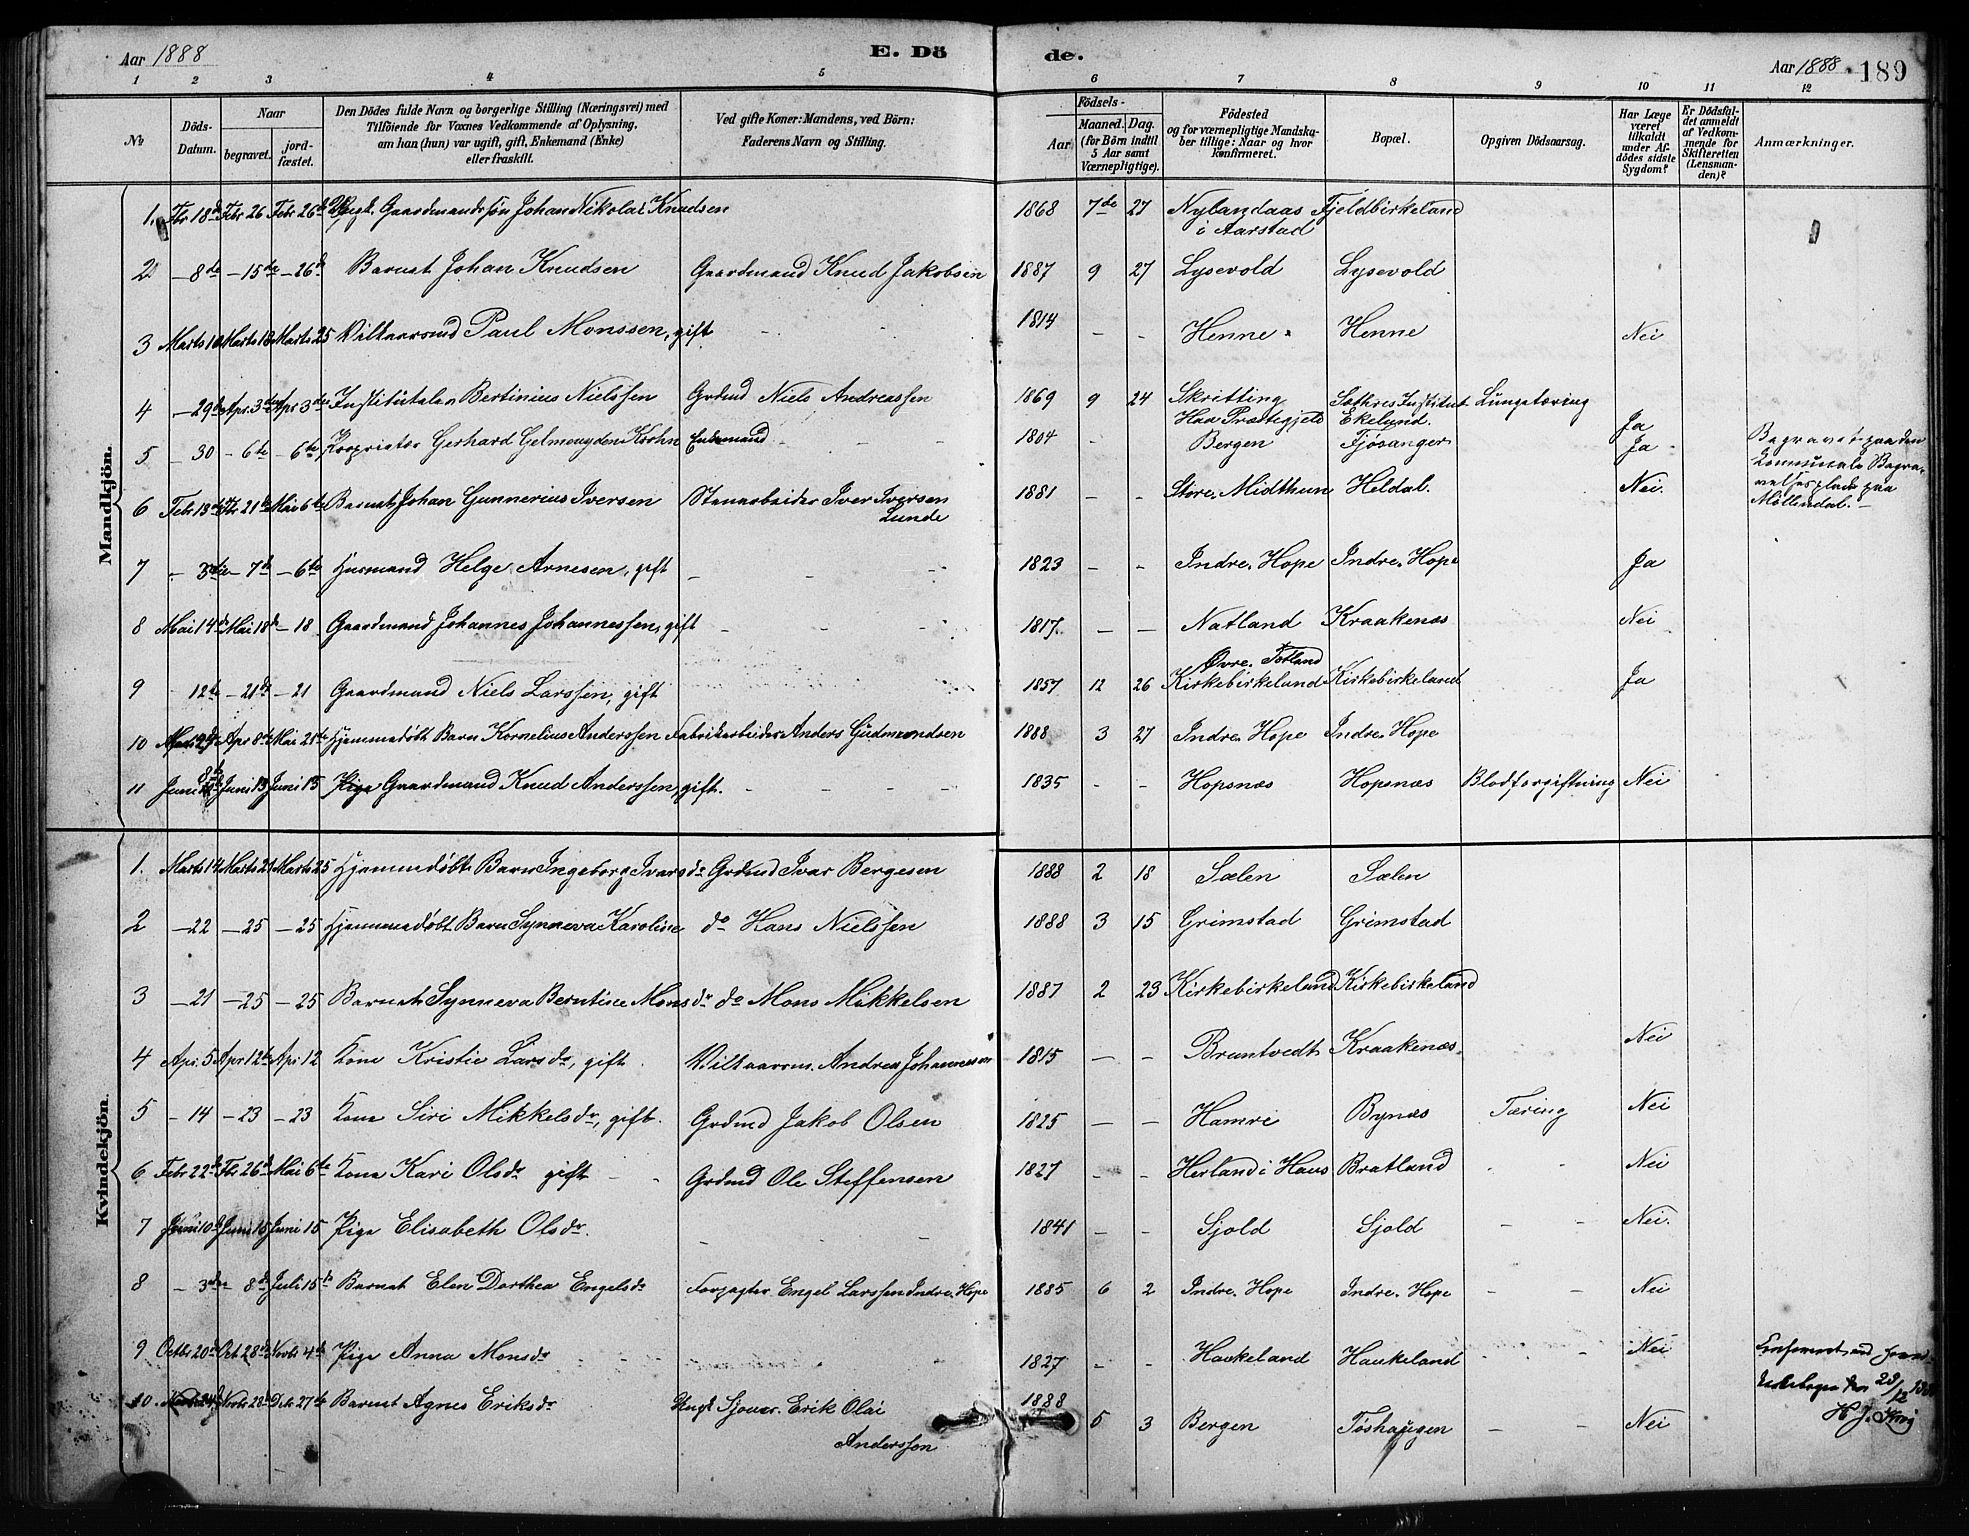 Aar 1888
E. Döde.
Aar 1888 189
1 2 3 4 5 6 7 8 9 10 11 12
№
Döds-Datum.
Naar
begravet.
jord-fæstet.
Den Dödes fulde Navn og borgerlige Stilling (Næringsvei) med
Tilföiende for Voxnes Vedkommende af Oplysning,
om han (hun) var ugift, gift, Enkemand (Enke)
eller fraskilt.
Ved gifte Koner: Mandens, ved Börn:
Faderens Navn og Stilling.
Födsels-
Aar
Maaned. Dag.
(for Börn indtil
5 Aar samt
Værnepligtige).
Födested
og for værnepligtige Mandska-
ber tillige: Naar og hvor
konfirmeret.
Bopæl.
Opgiven Dödsaarsag.
Har Læge
været
tilkaldt
under Af-
dödes sidste
Sygdom?
Er Dödsfal-
det anmeldt
af Vedkom-
mende for
Skifteretten
(Lensman-
den)?
Anmærkninger.
Mandkjön.
1. Fbr 18de Febr 26 Febr 26de Gaardmandssøn Johan Nikolai Knudsen 1868 7de 27 Nylandaas Fjeldbirkeland
i Aarstad
2 — 8de — 15de — 26de Barnet Johan Knudsen Gaardmand Knud Jakobsen 1887 9 27 Lysevold Lysevold
3 Marts Marts 18 Marts 25 Vilkaarsmd Paul Monssen, gift - - 1814 - - Henne Henne Nei
4 — 29de Apr 3die Apr 3die Institutelev Bertinius Nielssen Grdmd Niels Andreassen 1869 9 24 Skritting Sæthres Institut Lungetæring
Haa Præstegjeld Ekelund. Ja
5 — 30 — 6te — 6te Proprietær Gerhard Gelmeuyden Krohn Enkemand - - 1804 - - Bergen Fjøsanger Ja Begravet paa den
kommunale Begra-
velsesplads paa
Møllendal. —
6 Febr 13de Fbr 21de Mai 6te Barnet Johan Gunnerius Iversen Stenarbeider Iver Iversen
Lunde 1881 - - Store Midthun Heldal. Nei.
7 — 3die — 7de — 6te Husmand Helge Arnesen, gift - - - 1823 - - Indre Hope Indre Hope Ja
8 Mai 14de Mai 18de — 18 Gaardmand Johannes Johannessen, gift - - - 1817. — — Natland Kraakenæs Nei
Øvre Totland
9 12te — 21de — 21 Gaardmand Niels Larssen, gift 1857 12 26 Kirkebirkeland Kirkebirkeland Ja
10 Apr 8de Mai 21de Hjemmedøbt Barn Kornelius Anderssen Fabrikarbeider Anders Gudmundsen 1888 3 27 Indre Hope Indre Hope
11 Juni 8de Juni 13 Juni 15 Pige Gaardmand Knud Anderssen, gift. - - - 1835 - - Hopsnæs Hopsnæs Blodforgiftning Nei
Kvindekjön.
1. Marts 14 Marts 21 Marts 25 Hjemmedøbt Barn Ingeborg Ivarsdr Grdmd Ivar Bergesen 1888 2 18 Sælen Sælen
2 — 22 — 25 — 25 Hjemmedøbt Barn Synneva Karoline do Hans Nielssen 1888 3 15 Grimstad Grimstad
3 — 21 — 25 — 25 Barnet Synneva Berntine Monsdr do Mons Mikkelsen 1887 2 23 Kirkebirkeland Kirkebirkeland
4 Apr. 5 Apr 12te Apr 12 Kone Kristie Larsdr, gift. Vilkaarsm. Andreas Johannessen 1815 — — Brantvedt Kraakenæs. Nei
5 — 14 — 23 — 23 Kone Siri Mikkelsdr, gift. Grdmd Jakob Olsen 1825 — — Hamre Bynæs Tæring Nei
6 Febr 22de Fbr 26de Mai 6te Kone Kari Olsdr gift - - Grdmd Ole Steffensen 1827 - - Herland i Haus Bratland - - Nei
7 Juni 10de Juni 15 Juni 15 Pige Elisabeth Olsdr. - - - 1841 - - Sjold Sjold - - Nei.
8 — 3die — 8de Juli 15de Barnet Elen Dorthea Engelsdr Forpagter Engel Larssen Indre Hope 1885 6 2 Indre Hope Indre Hope - - Nei
9 Octbr 20de Oct 28de Novbr 4de Pige Anna Monsdr - - 1827 - - Haukeland Haukeland - - Nei
10. Novbr 24de Novbr 28de Dcbr 27de Barnet Agnes Eriksdr Ungk Sjømd. Erik Olai
Anderssen 1888 5 3 Bergen Tøshaugen - - Nei
Konfereret med
Kirkebogen den 29/12 1888
H. J. Krog